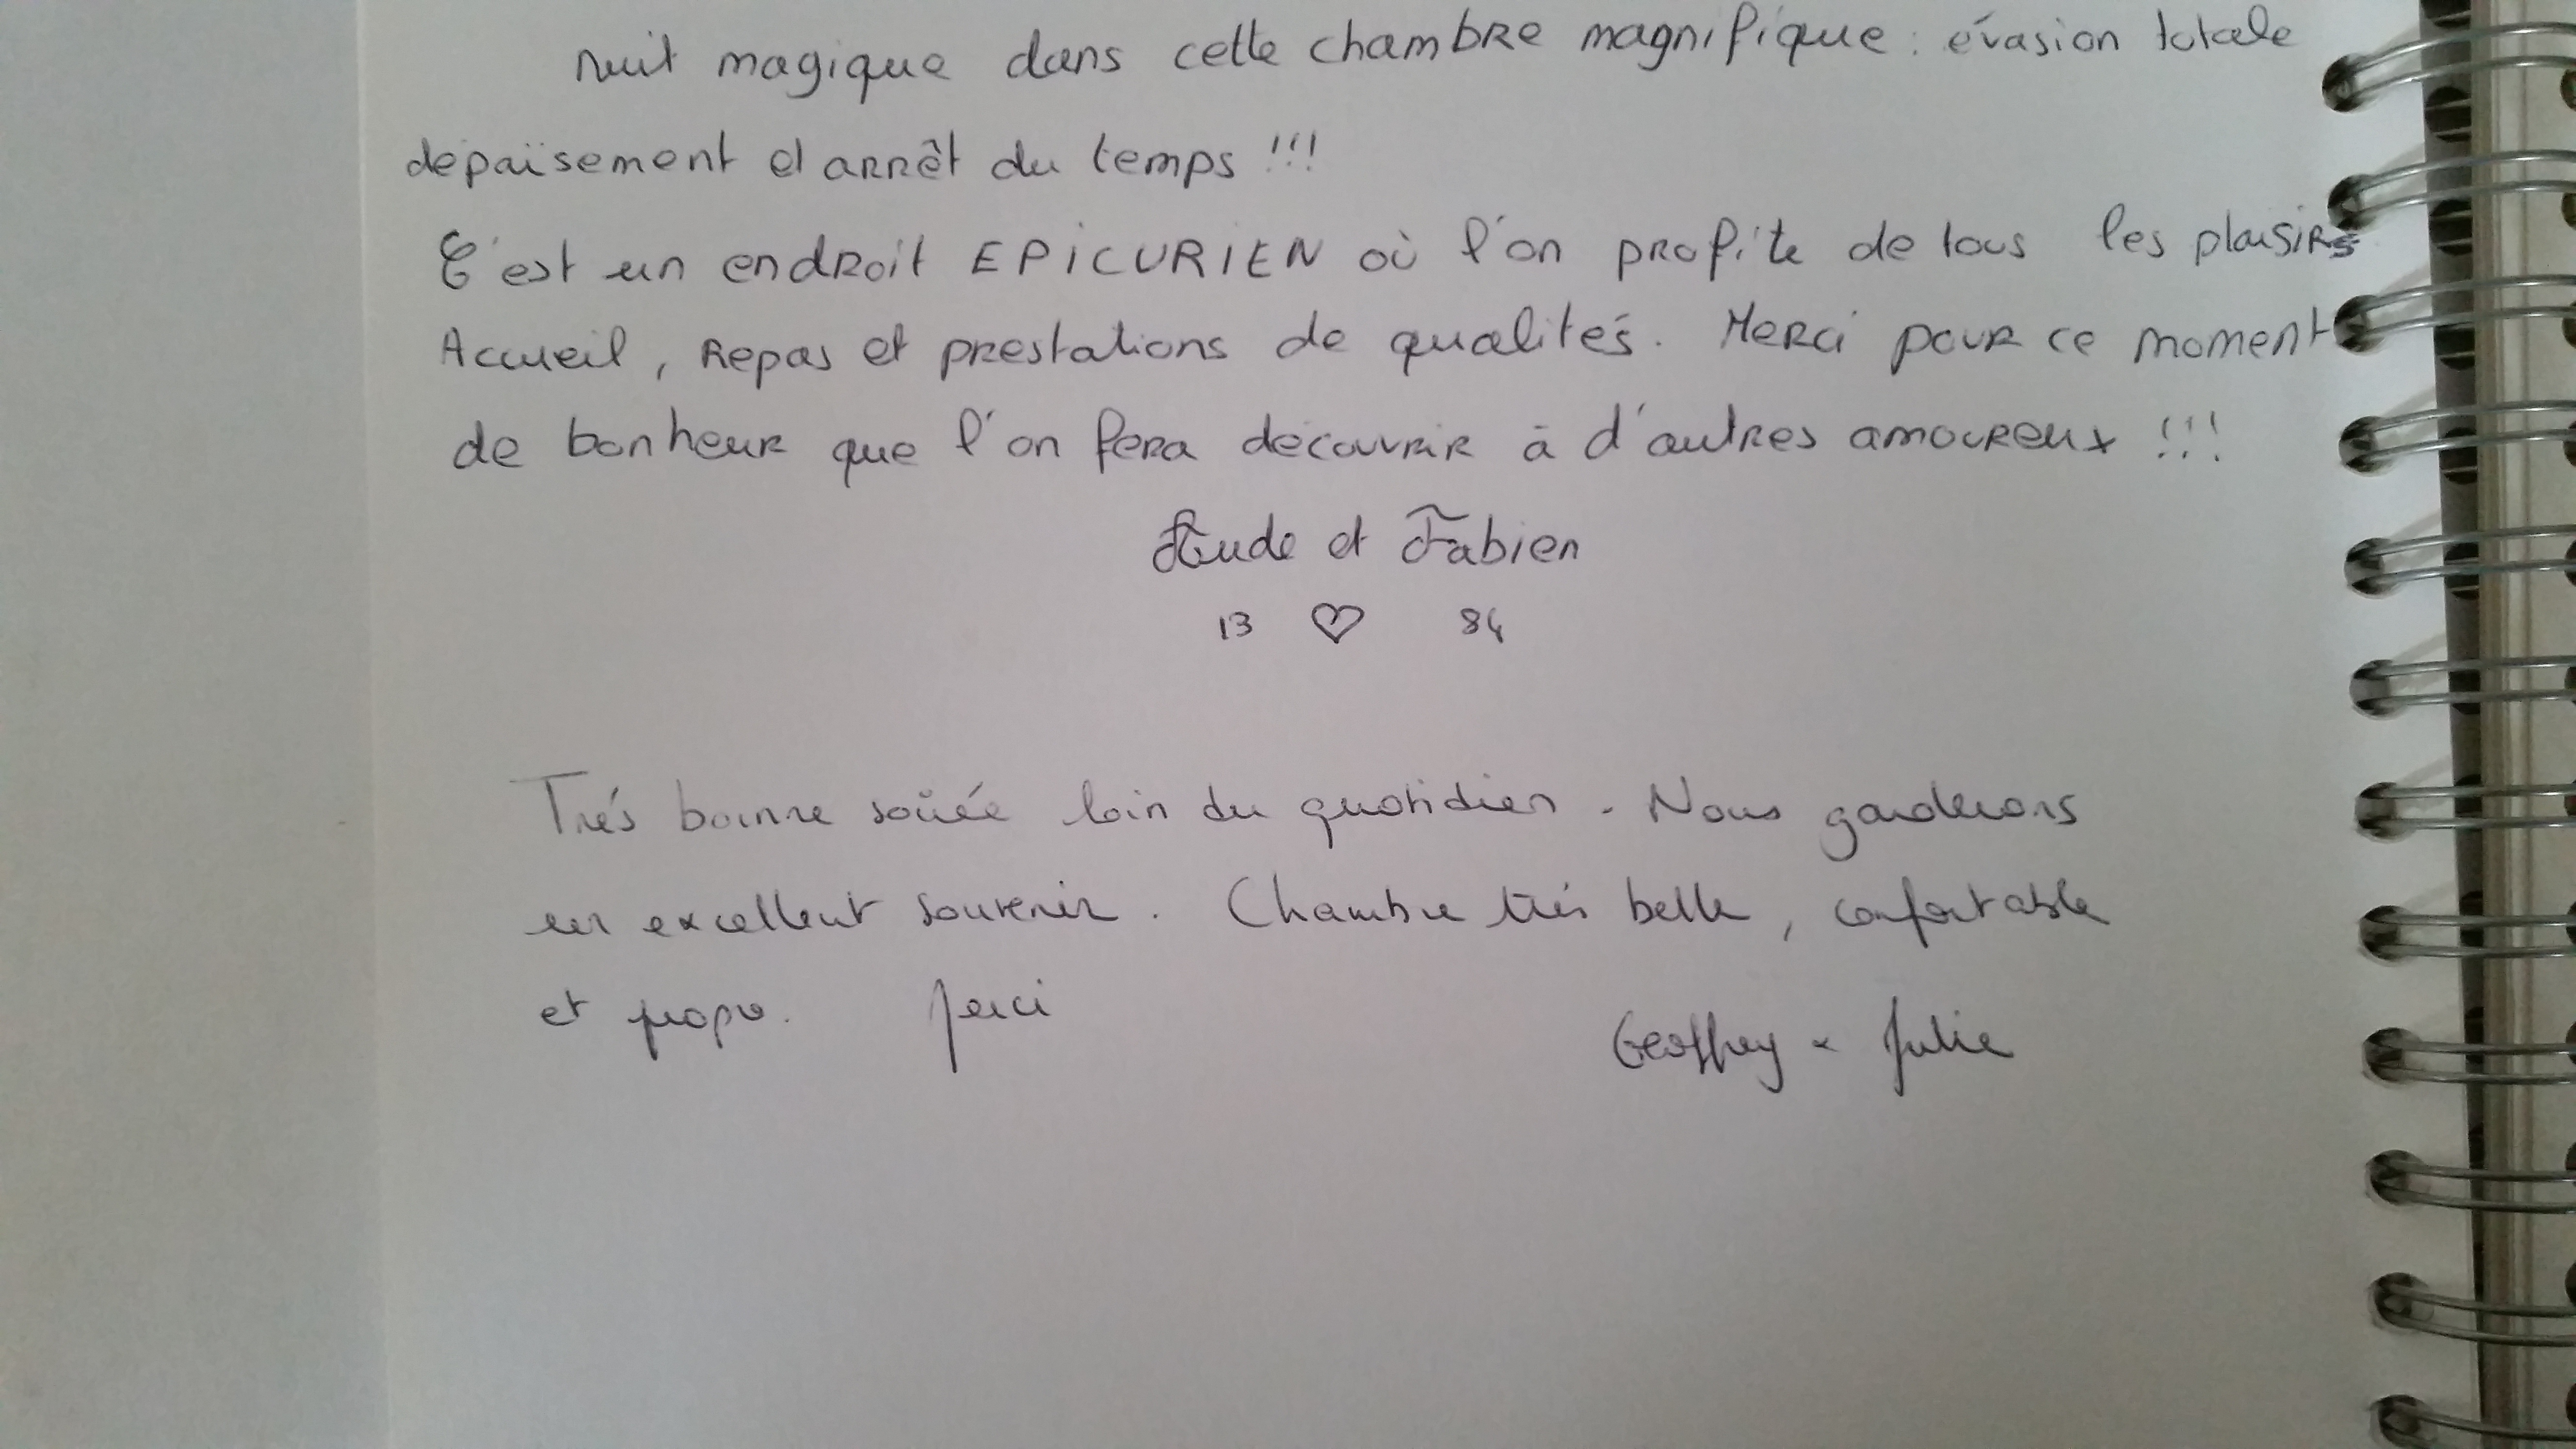 nuit magique dans cette chambre magnifique : évasion totale
dépaïsement et arrêt du temps !!!
C'est un endroit EPICURIEN où l'on profite de tous les plaisirs
Accueil, Repas et prestations de qualités. Merci pour ce moment
de bonheur que l'on fera découvrir à d'autres amoureux !!!
Aude et Fabien
13 ♡ 84
Trés bonne soirée loin du quotidien. Nous garderons
un excellent souvenir. Chambre trés belle, confortable
et propre. Merci
Geoffrey & Julie